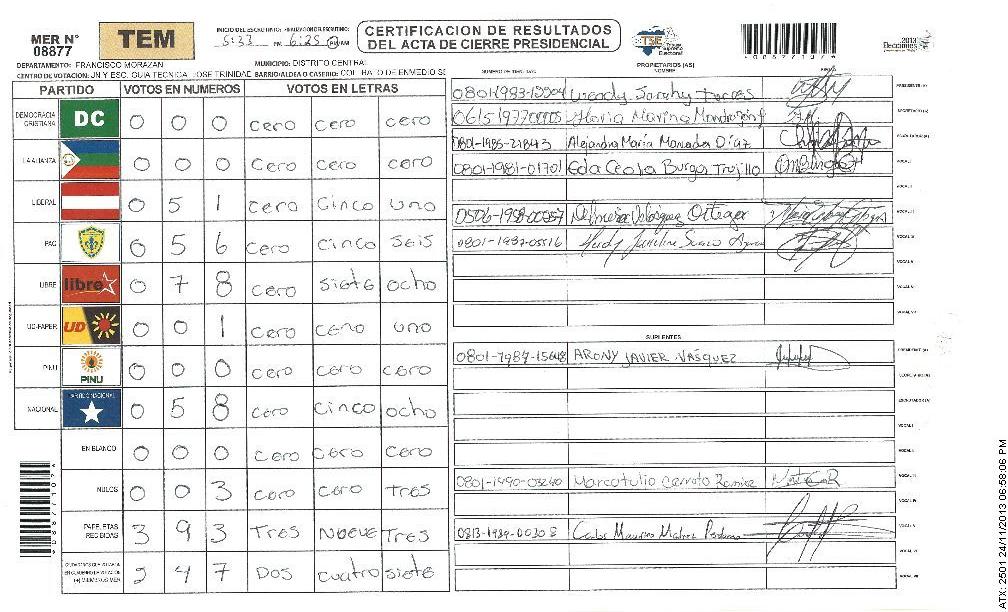 MER N° 08877
TEM
INICIO DEL ESCRUTINIO: FINALIZACION DEL ESCRUTINIO:
5:33 PM 6:25 PM/AM
CERTIFICACION DE RESULTADOS
DEL ACTA DE CIERRE PRESIDENCIAL
TSE
2013
Elecciones
DEPARTAMENTO: FRANCISCO MORAZAN MUNICIPIO: DISTRITO CENTRAL
CENTRO DE VOTACION: JN Y ESC. GUIA TECNICA, JOSE TRINIDAD BARRIO/ALDEA O CASERIO: COL. RATO DE ENMEDIO SE
PROPIETARIOS (AS)
NOMBRE
PARTIDO VOTOS EN NUMEROS VOTOS EN LETRAS
DEMOCRACIA CRISTIANA DC 0 0 0 cero cero cero
LA ALIANZA 0 0 0 cero cero cero
LIBERAL 0 5 1 cero cinco uno
PAC 0 5 6 cero cinco seis
LIBRE libre 0 7 8 cero siete ocho
UD-FAPER UD 0 0 1 cero cero uno
PINU PINU 0 0 0 cero cero cero
NACIONAL PARTIDO NACIONAL 0 5 8 cero cinco ocho
EN BLANCO 0 0 0 cero cero cero
NULOS 0 0 3 cero cero Tres
PAPELETAS RECIBIDAS 3 9 3 Tres Nueve Tres
2 4 7 DOS cuatro siete
Wendy Sarahy Torres PRESIDENTE (A)
Maria Marina SECRETARIO (A)
Alejandra María Díaz ESCRUTADOR (A)
0801-1981-01701 Eda Burgos Trujillo VOCAL I
VOCAL II
Velásquez Ortega VOCAL III
0801-1987-05516 VOCAL IV
VOCAL V
VOCAL VI
VOCAL VII
SUPLENTES
ARONY JAVIER VASQUEZ PRESIDENTE (A)
SECRETARIO (A)
ESCRUTADOR (A)
VOCAL I
VOCAL II
0801-1990-03240 Marco tulio Cerrato Ramirez VOCAL III
VOCAL IV
Carlos Mauricio VOCAL V
VOCAL VI
VOCAL VII
ATX: 2501 24/11/2013 06:58:06 PM